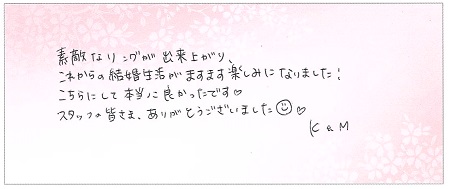 素敵なリングが出来上がり、
これからの結婚生活がますます楽しみになりました!
こちらにして本当に良かったです♡
スタッフの皆さま、ありがとうございました☺♡
K & M